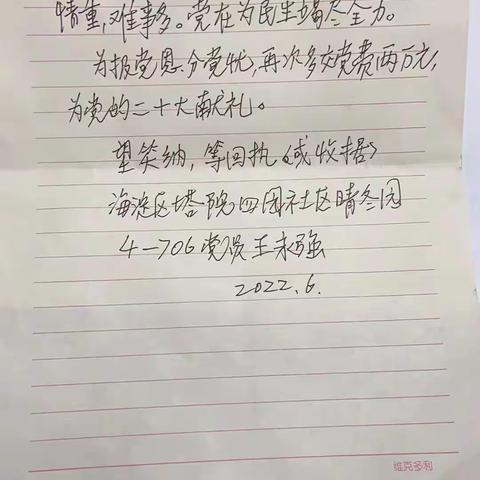 情重,难事多。党在为民生竭尽全力。
为报党恩,分党忧,再次多交党费两万元,
为党的二十大献礼。
望笑纳,等回执<或收据>
海淀区塔院四园社区晴冬园
4-706党员王永强
2022.6.
维克多利